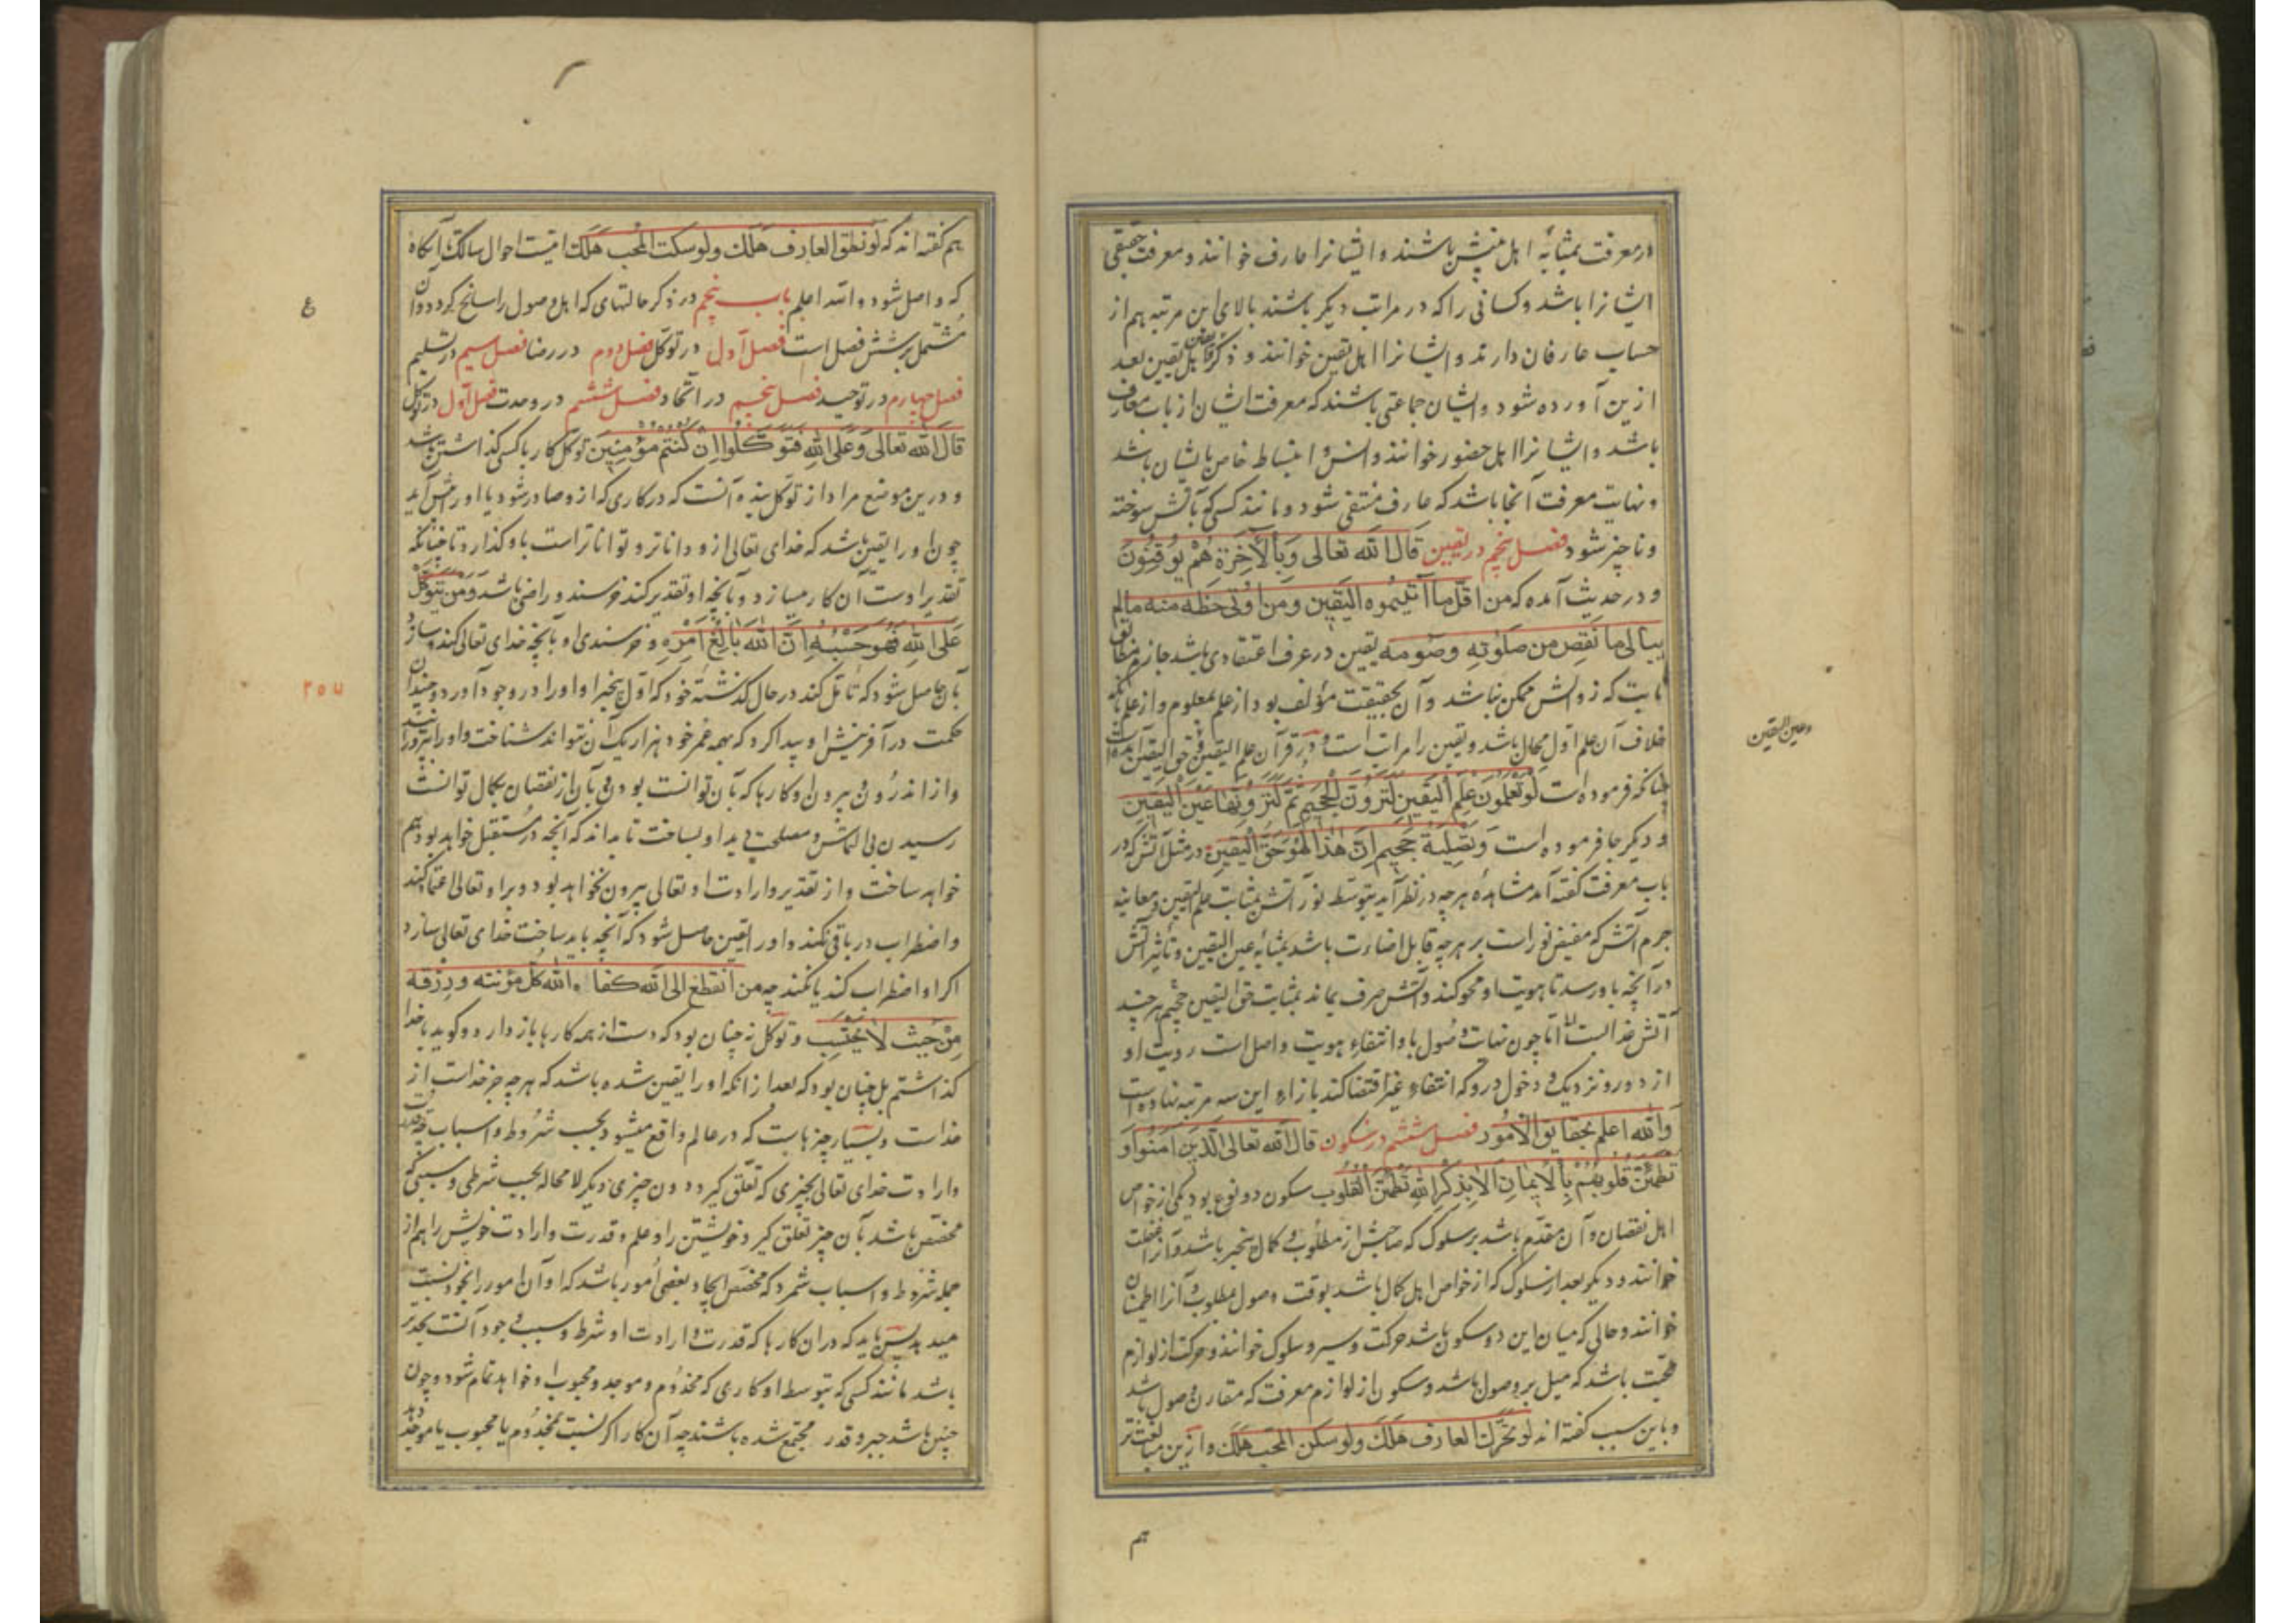 در معرفت بمثابهٔ اهل بینش باشند و ایشانرا عارف خوانند و معرفت حقیقی
ایشانرا باشد و کسانی را که در مراتب دیکر باشند بالای این مرتبه هم از
حساب عارفان دارند و ایشانرا اهل یقین خوانند و ذکر اهل یقین بعد
ازین آورده شود و ایشان جماعتی باشند که معرفت ایشان از باب معارف
باشد و ایشانرا اهل حضور خوانند و انس و انبساط خاص بایشان باشد
و نهایت معرفت آنجا باشد که عارف منتفی شود و مانند کسی که بآتش سوخته
و ناچیز شود فصل پنجم در یقین قال الله تعالی وَبِالْآخِرَةِ هُمْ يُوقِنُونَ
و در حدیث آمده که من اقلّ ما اُتیتموه الیقین ومن اوتی حظه منه مالم
یبالی ما نقص من صلوته وصومه یقین در عرف اعتقادی باشد جازم مطابق
ثابت که زوالش ممکن نباشد و آن بحقیقت مؤلف بود از علم بمعلوم و از علم بآنکه
خلاف آن علم اول محال باشد و یقین را مراتب است و در قرآن علم الیقین و حق الیقین آمده است
وعین الیقین
چنانکه فرموده است لَوْ تَعْلَمُونَ عِلْمَ الْيَقِينِ لَتَرَوُنَّ الْجَحِيمَ ثُمَّ لَتَرَوُنَّهَا عَيْنَ الْيَقِينِ
و دیکر جا فرموده است وَتَصْلِيَةُ جَحِيمٍ اِنَّ هٰذَا لَهُوَ حَقُّ الْيَقِينِ در مثل آتش که در
باب معرفت کفته آمد مشاهدهٔ هرچه در نظر آید بتوسط نور آتش بمثابت علم الیقین و معاینه
جرم آتش که مفیض نور است بر هرچه قابل اضاءت باشد بمثابه عین الیقین و تأثیر آتش
در آنچه باو رسد تا هویت او محو کند و آتش صرف بماند بمثابت حق الیقین جحیم هرچند
آتش عذابست اما چون نهایت وصول باو انتفاءِ هویت واصل است رویت او
از دور و نزدیک و دخول درو که انتفاءِ غیر اقتضا کند بازاءِ این سه مرتبه نهاده است
والله اعلم بحقایق الامور فصل ششم در سکون قال الله تعالی الَّذِينَ آمَنُوا وَ
تَطْمَئِنُّ قُلُوبُهُمْ بِالْاِيمانِ اَلَا بِذِكْرِ اللهِ تَطْمَئِنُّ الْقُلُوب سکون دو نوع بود یکی از خواص
اهل نقصان و آن مقدم باشد بر سلوک که صاحبش از مطلوب و کمال بیخبر باشد و آنرا غفلت
خوانند و دیکر بعد از سلوک که از خواص اهل کمال باشد بوقت وصول مطلوب و آنرا اطمینان
خوانند و حالی که میان این دو سکون باشد حرکت و سیر و سلوک خوانند و حرکت از لوازم
محبت باشد که میل بر وصول باشد و سکون از لوازم معرفت که مقارن وصول باشد
و باین سبب کفته اند لو تحرّک العارف هَلَکَ ولو سکن المحب هَلَکَ و ازین مبالغت‌تر
هم
هم کفته اند که لو نطق العارف هَلَکَ ولو سکت المُحب هَلَکَ اینست احوال سالک تا آنکاه
که واصل شود والله اعلم باب پنجم در ذکر حالتهای که اهل وصول را سانح کردد و آن
مُشتمل بر شش فصل است فصل آول در توکل فصل دوم در رضا فصل سیم در تسلیم
فصل چهارم در توحید فصل پنجم در اتحاد فصل ششم در وحدت فصل آول در توکل
قالَ الله تعالی وَعَلَی اللهِ فَتَوَكَّلُوا اِنْ كُنْتُمْ مُؤْمِنِينَ توکل کار باکسی کذاشتن باشد
و درین موضع مراد از توکل بنده آنست که در کاری که ازو صادر شود یا او را پیش آید
چون او را یقین باشد که خدای تعالی ازو داناتر و تواناتر است باو کذارد تا چنانکه
تقدیر اوست آن کار میسازد و بآنچه او تقدیر کند خرسند و راضی باشد وَمَنْ يَتَوَكَّلْ
عَلَی اللهِ فَهُوَ حَسْبُهُ اِنَّ اللهَ بالِغُ اَمْرِهِ و خرسندی او بآنچه خدای تعالی کند و سازد
بآن حاصل شود که تامّل کند در حال کذشتهٔ خود که اول بیخبر او او را در وجود آورد و چندان
حکمت در آفرینش او پیدا کرد که بهمه عُمر خود هزار یک آن نتواند شناخت و او را بپرورانید
و از اندرون و بیرون او کارها که بآن توانست بودن و بآن از نقصان بکمال توانست
رسیدن بی التماس و مصلحت دید او بساخت تا بداند که آنچه در مستقبل خواهد بود هم
خواهد ساخت و از تقدیر و ارادت او تعالی بیرون نخواهد بود و بر او تعالی اعتماد کند
و اضطراب در باقی نکند و او را یقین حاصل شود که آنچه باید ساخت خدای تعالی سازد
اکر او اضطراب کند یا نکند چه من انقطع الی الله کفاه الله کُلّ مؤنته ورزقه
مِنْ حَيْثُ لَا يَحْتَسِبُ و توکل نه چنان بود که دست از همه کارها باز دارد و کوید باخدا
کذاشتم بل چنان بود که بعد از آنکه او را یقین شده باشد که هرچه جز خداست از
خداست و بسیار چیزهاست که در عالم واقع میشود بحسب شروط و اسباب چه قدرت
و ارادت خدای تعالی بچیزی که تعلّق کیرد دون چیزی دیکر لا محاله بحسب شرطی و سببی که
مختص باشد بآن چیز تعلق کیرد خویشتن را و علم و قدرت و ارادت خویش را هم از
جمله شروط و اسباب شمرد که مخصص ایجاد بعضی اُمور باشد که او آن امور را بخود نسبت
میدهد پس باید که در آن کارها که قدرت و ارادت او شرط و سبب وجود آنست بجدتر
باشد مانند کسی که بتوسط او کاری که مخدوم و موجد و محبوب او خواهد تمام شود و چون
چنین باشد جبر و قدر مجتمع شده باشند چه آن کار را اکر نسبت بمخدُوم یا محبوب یا موجد دهد
۴